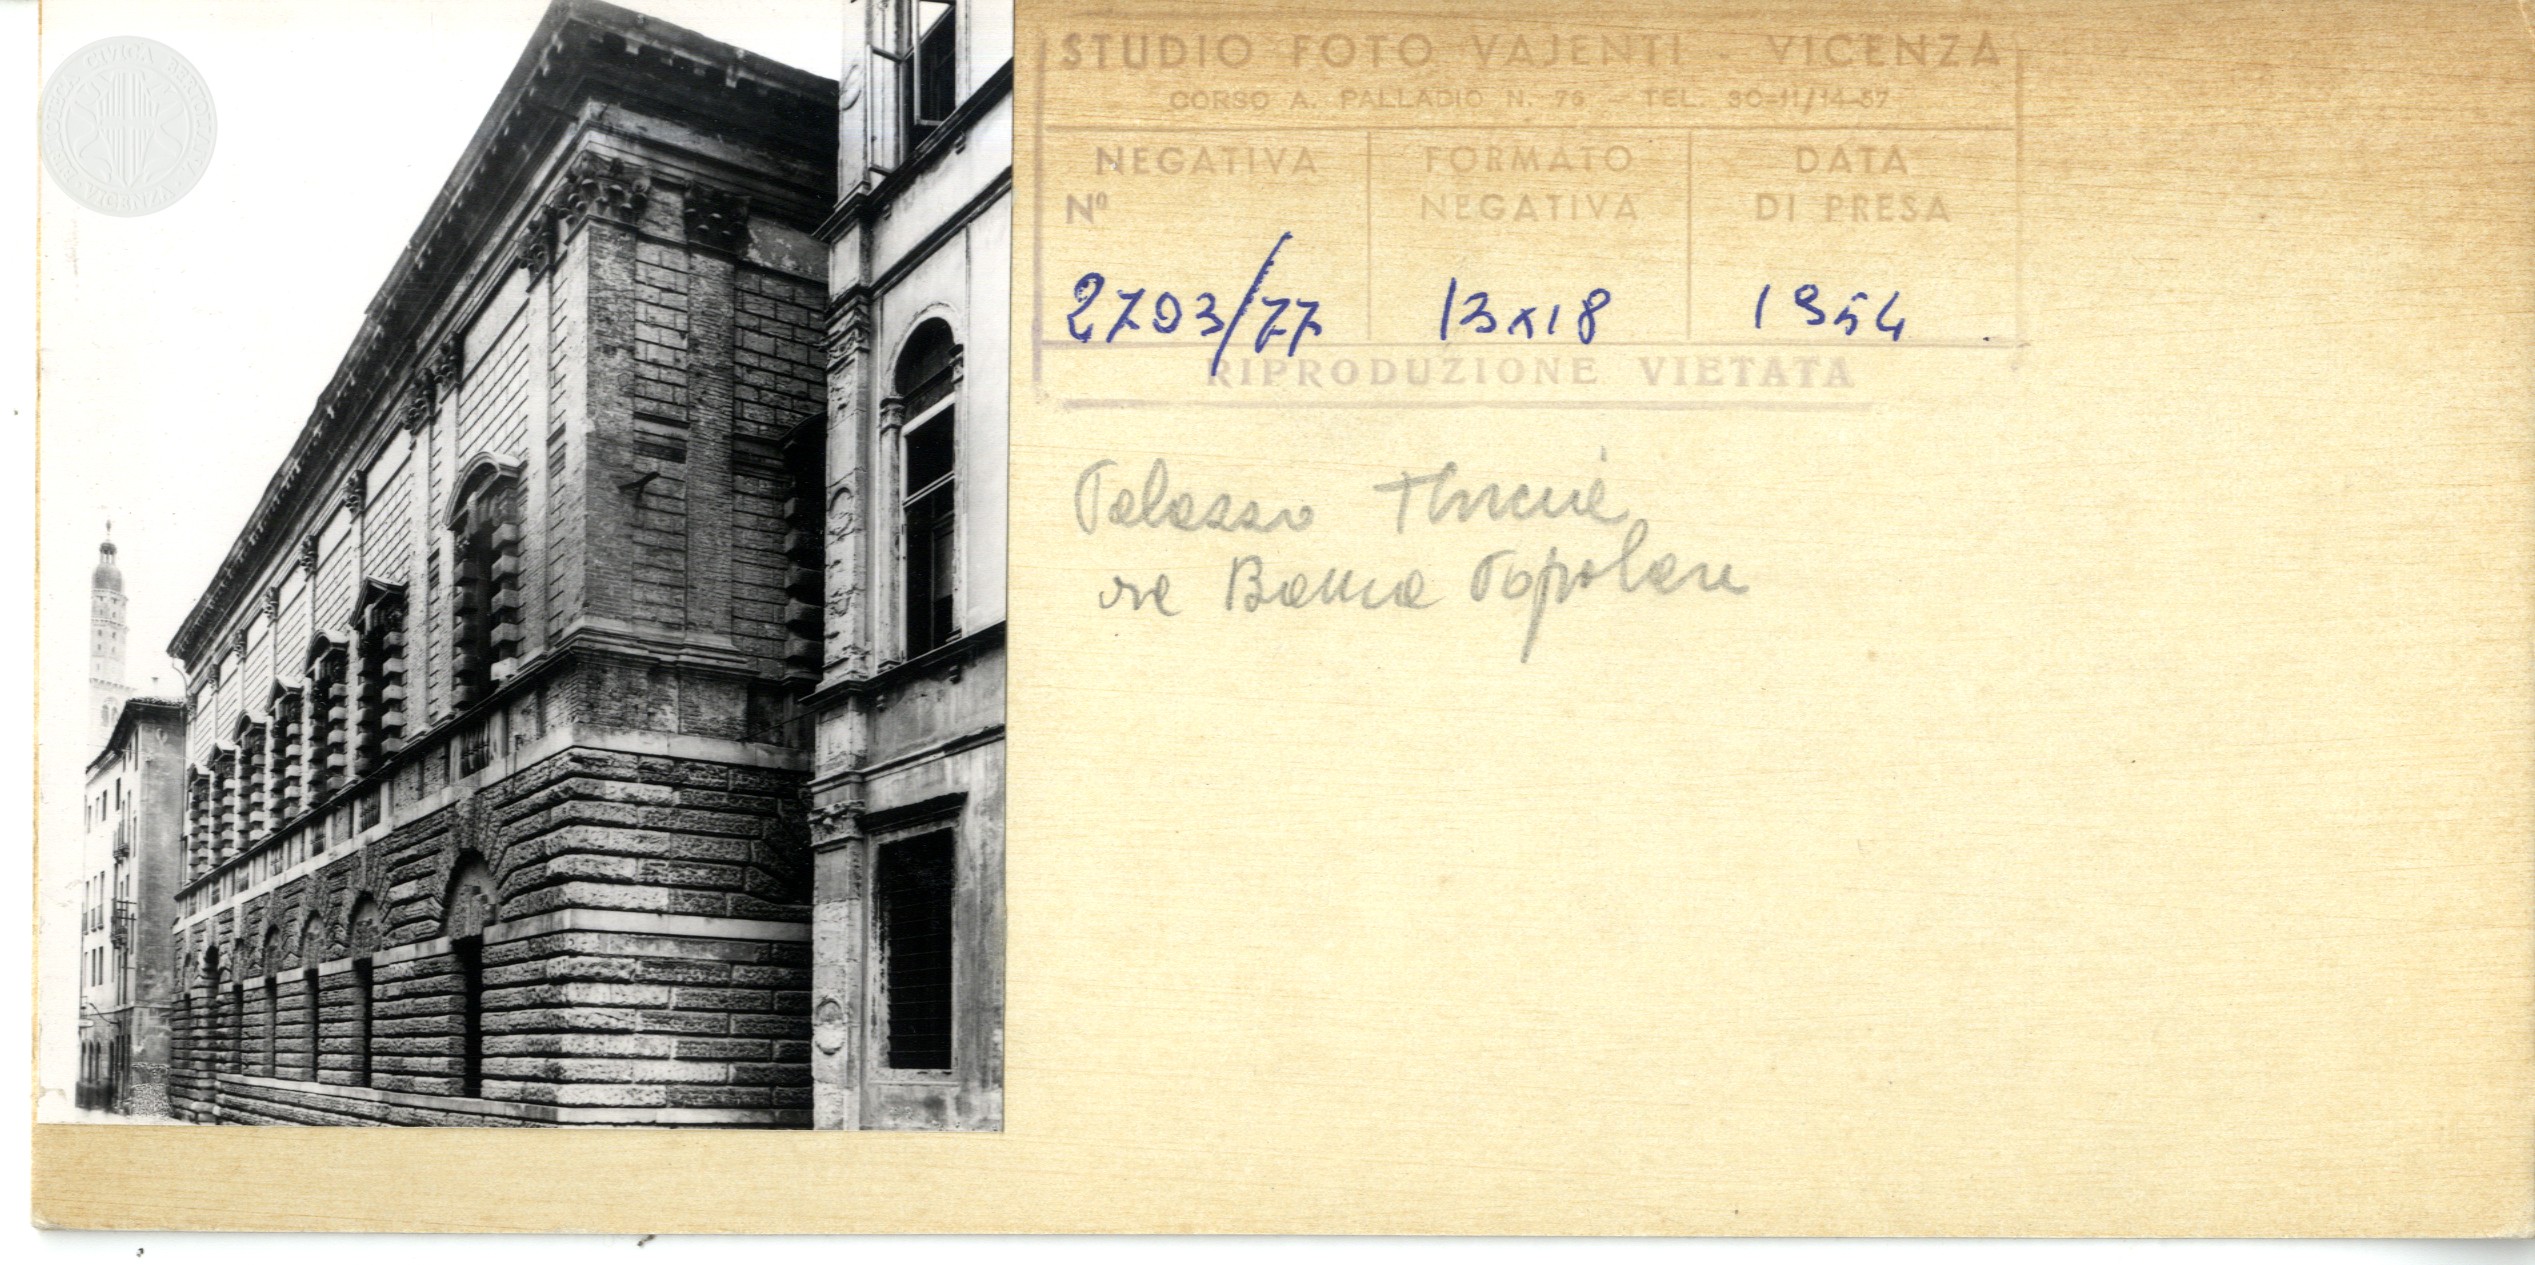 BIBLIOTECA CIVICA BERTOLIANA VICENZA
STUDIO FOTO VAJENTI - VICENZA
CORSO A. PALLADIO N. 76 - TEL. 30-11/14-57
NEGATIVA FORMATO DATA
Nº NEGATIVA DI PRESA
2703/77 13x18 1954
RIPRODUZIONE VIETATA
Palazzo Thiene
Banca Popolare